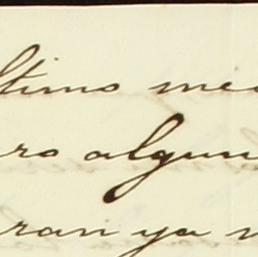 ltimo me
ro algun
ran ya